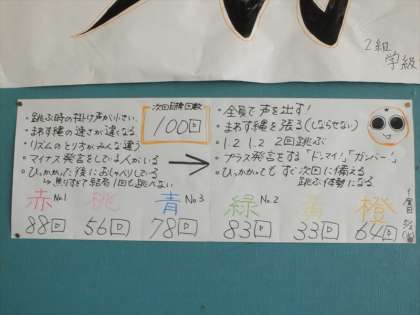 2組
学級
・跳ぶ時の掛け声が小さい
・まわす縄の速さが遅くなる
(リズムのとり方がみんな違う)
・マイナス発言をしている人がいる
・ひっかかった後におしゃべりしている
↳焦りすぎて結局1回も跳べない
次回目標回数
100回
→
・全員で声を出す!
・まわす縄を張る(しならせない)
・1 2 1 2 2回跳ぶ
・プラス発言をする「ドンマイ!」「ガンバ!」
・ひっかかってもすぐ次に備える
跳ぶ体勢になる
赤 No1
88回
桃
56回
青 No3
78回
緑 No.2
83回
黄
33回
橙
64回